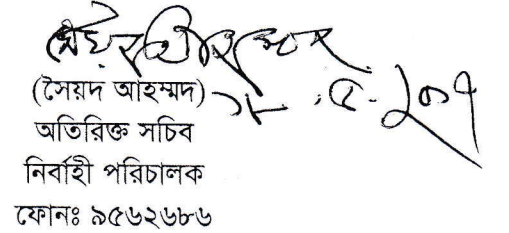 (সৈয়দ আহম্মদ)
অতিরিক্ত সচিব
নির্বাহী পরিচালক
ফোনঃ ৯৫৬২৬৮৬